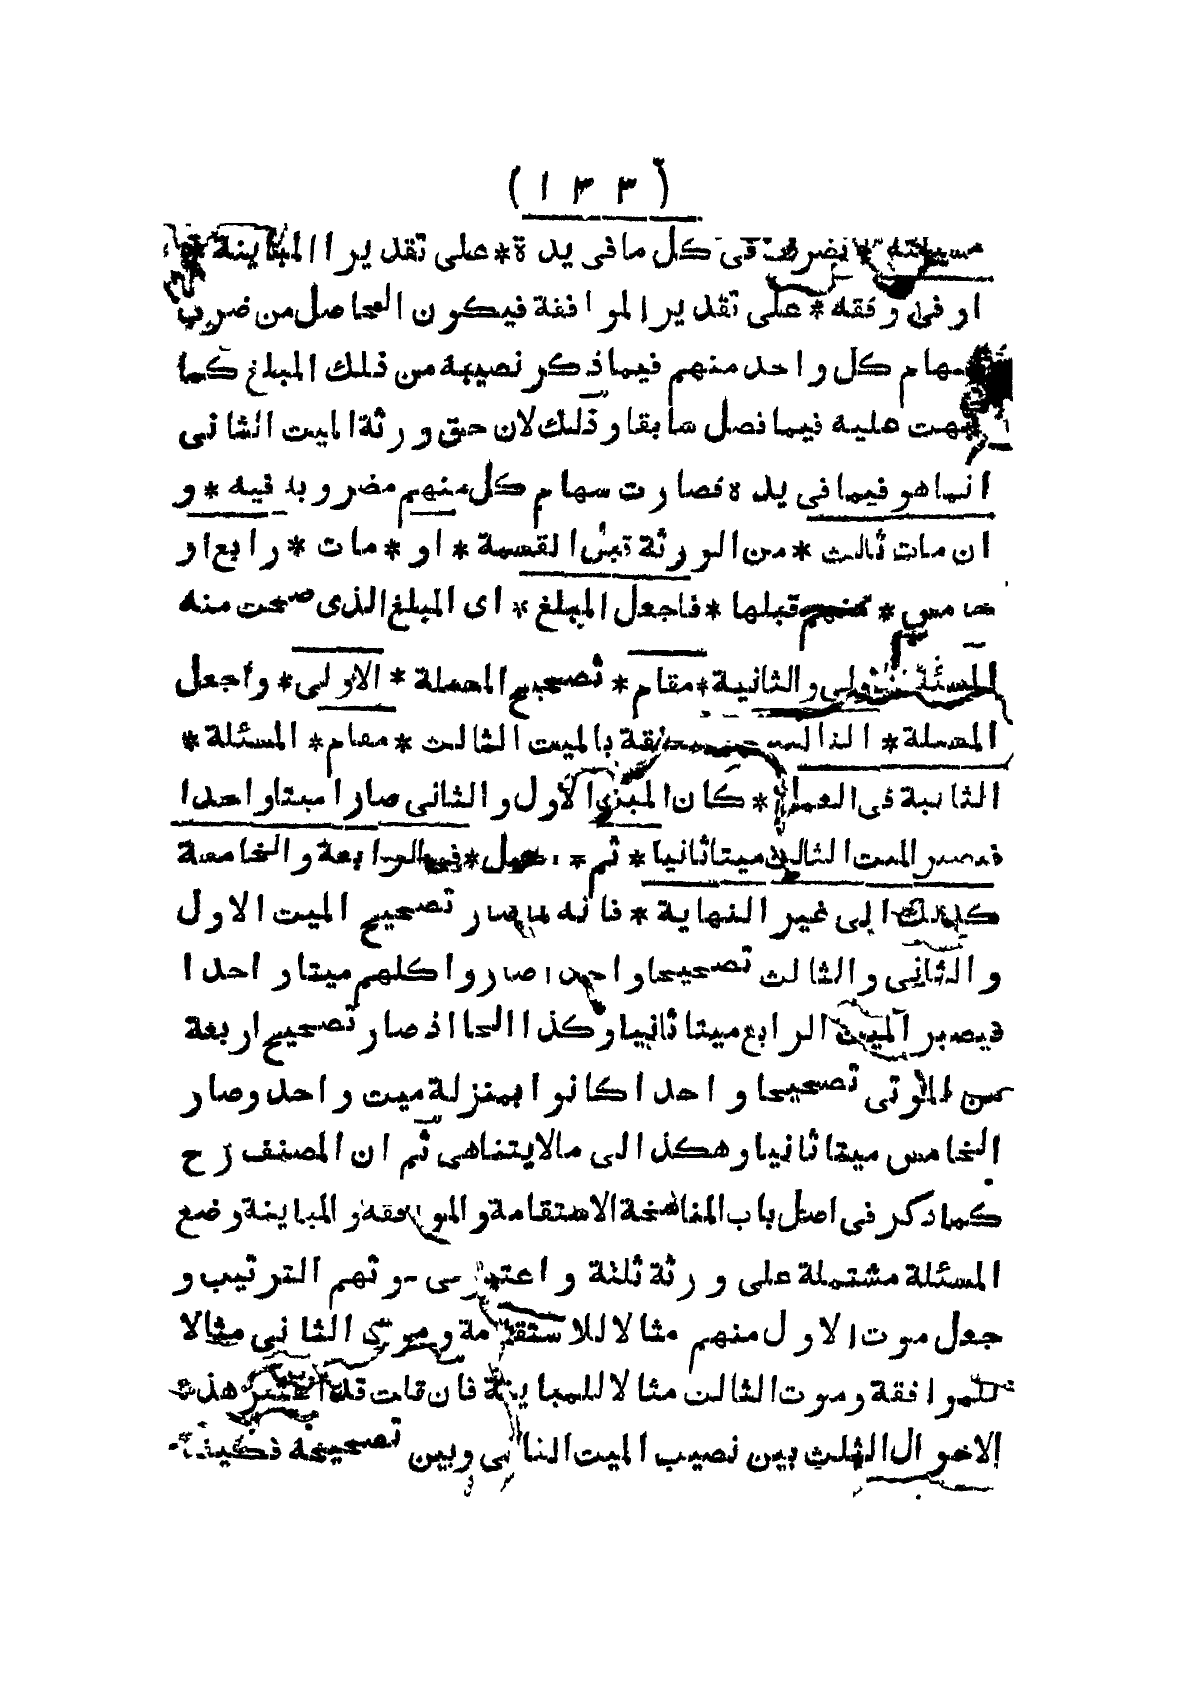 (١٣٣)
تضرب * فى كل ما فى يده * على تقدير المباينة *
او فى وفقه * على تقدير الموافقة فيكون الحاصل من ضرب
سهام كل واحد منهم فيما ذكر نصيبه من ذلك المبلغ كما
نبهت عليه فيما فصل سابقا وذلك لان حق ورثة الميت الثانى
انما هو فيما فى يده فصارت سهام كل منهم مضروبة فيه * و
ان مات ثالث * من الورثة قبل القسمة * او * مات * رابع او
خامس * منهم قبلها * فاجعل المبلغ * اى المبلغ الذى صحت منه
المسئلة الاولى والثانية * مقام * تصحيح المسئلة * الاولى * واجعل
المسئلة * الثالثة المتعلقة بالميت الثالث * مقام * المسئلة *
الثانية فى العمل * كان الميت الاول والثانى صارا ميتا واحدا
فيصير الميت الثالث ميتا ثانيا * ثم * فى الرابعة والخامسة
كذلك الى غير النهاية * فانه لما صار تصحيح الميت الاول
والثانى والثالث تصحيحا واحدا صاروا كلهم ميتا واحدا
فيصير الميت الرابع ميتا ثانيا وكذا الحا اذ صار تصحيح اربعة
من الموتى تصحيحا واحدا كانوا بمنزلة ميت واحد وصار
الخامس ميتا ثانيا وهكذا الى مالا يتناهى ثم ان المصنف رح
كما ذكر فى اصل باب المناسخة الاستقامة والموافقه والمباينة وضع
المسئلة مشتملة على ورثة ثلثة واعتبر فى موتهم الترتيب و
جعل موت الاول منهم مثالا للاستقامة وموت الثانى مثالا
للموافقة وموت الثالث مثالا للمباينة فان قلت قد اعتبر هذه
الاحوال الثلث بين نصيب الميت الثانى وبين تصحيحه فكيف